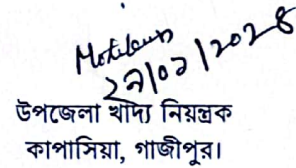 ২৯/০১/২০২৪
উপজেলা খাদ্য নিয়ন্ত্রক
কাপাসিয়া, গাজীপুর।